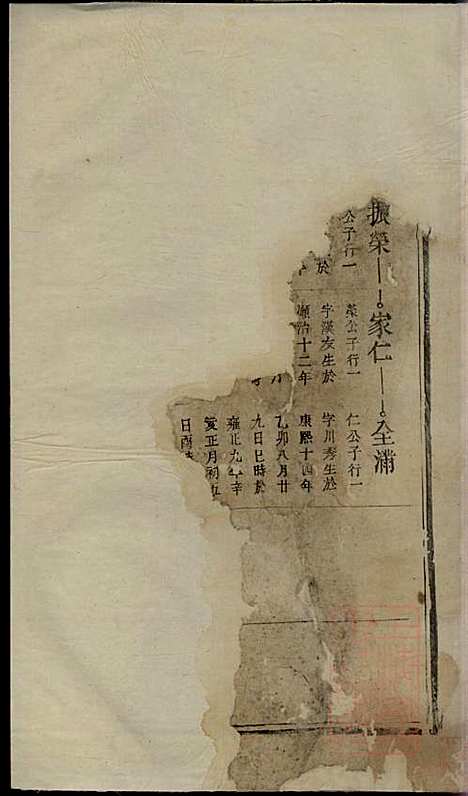 振榮 家仁 全滿
公子行一
於
榮公子行一
字漢友生於
順治十二年
仁公子行一
字川秀生於
康熙十四年
乙卯八月廿
九日巳時於
雍正九年辛
亥正月初五
日酉